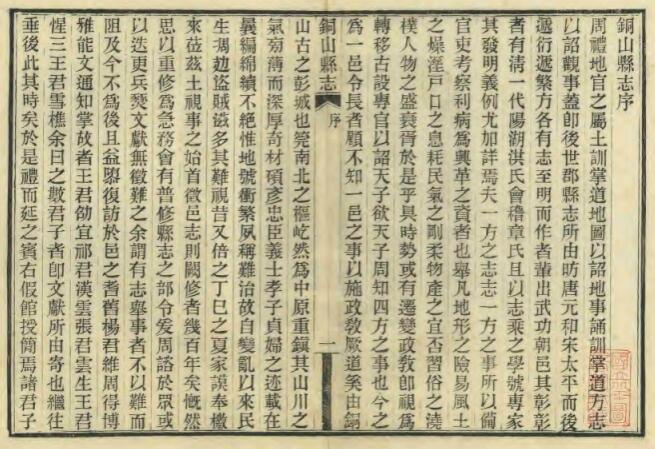 銅山縣志序
周禮地官之屬土訓掌道地圖以詔地事誦訓掌道方志
以詔觀事蓋卽後世郡縣志所由昉唐元和宋太平而後
遞衍遞繁方各有志至明而作者輩出武功朝邑其彰彰
者有淸一代陽湖洪氏會稽章氏且以志乘之學號專家
其發明義例尤加詳焉夫一方之志志一方之事所以備
官吏考察利病爲興革之資者也舉凡地形之險易風土
之燥溼戶口之息耗民氣之剛柔物產之宜否習俗之澆
樸人物之盛衰胥於是乎具時勢或有遷變政敎卽視爲
轉移古設專官以詔天子欲天子周知四方之事也今之
爲一邑令長者顧不知一邑之事以施政敎厥道奚由銅
銅山縣志
序
一
山古之彭城也筦南北之樞屹然爲中原重鎭其山川之
氣旁薄而深厚奇材碩彥忠臣義士孝子貞婦之迹載在
曩編綿續不絕惟地號衝繁夙稱難治故自變亂以來民
生凋劫盜賊滋多其難視昔又倍之丁巳之夏家謨奉檄
來莅茲土視事之始首徵邑志則闕修者幾百年矣慨然
思以重修爲急務會有普修縣志之部令爰周諮於眾或
以迭更兵燹文獻無徵難之余謂有志舉事者不以難而
阻及今不爲後且益難復訪於邑之耆舊楊君維周得博
雅能文通知掌故者王君劬宜祁君漢雲張君雲生王君
惺三王君雪樵余曰之數君子者卽文獻所由寄也繼往
垂後此其時矣於是禮而延之賓右假館授簡焉諸君子